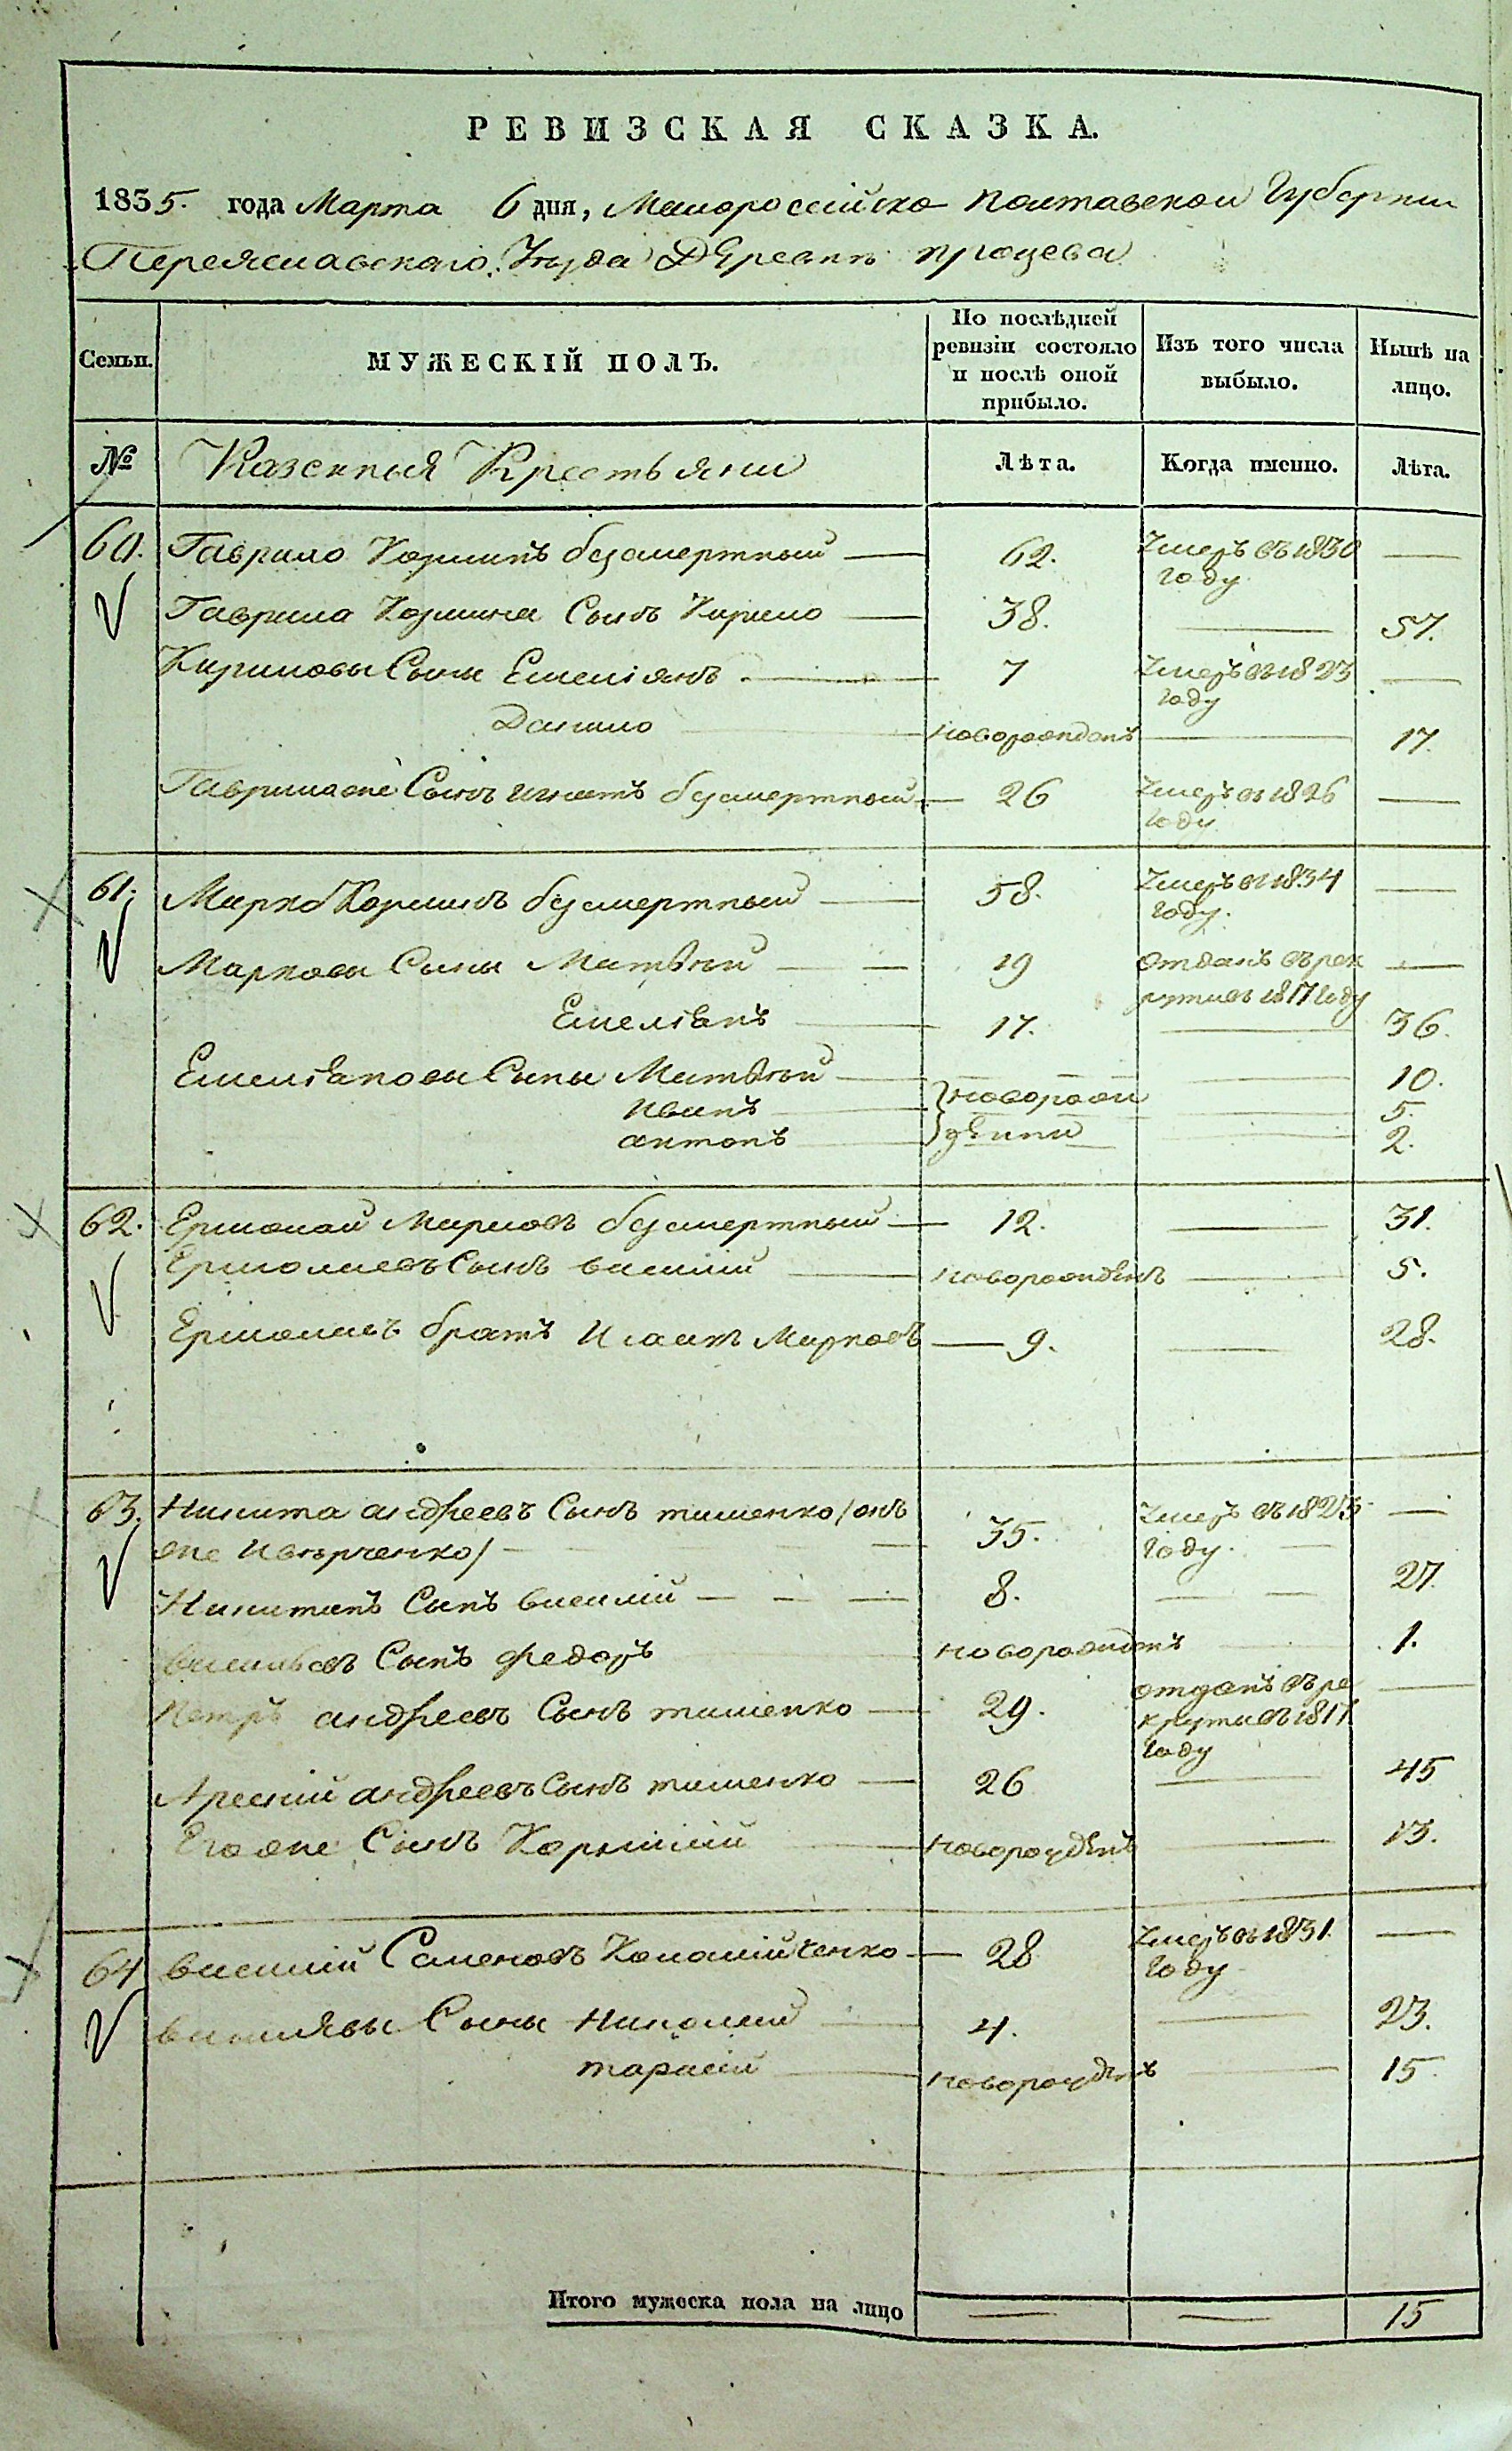 РЕВИЗСКАЯ СКАЗКА.
1835. года Марта 6 дня, Малоросѣйско Полтавской Губернии
Переяславскаго Уезда Деревни Процева
Семьи. МУЖЕСКІЙ ПОЛЪ. По послѣдней ревизіи состояло и послѣ оной прибыло. Изъ того числа выбыло. Нынѣ на лицо.
№ Казенныя Крестьяни Лѣта. Когда именно. Лѣта.
60. Гаврило Козминъ безмертный — 62. Умеръ въ 1830 году —
Гаврила Козмина Сынъ Кирило — 38. — 57.
Кириловы Сыны Емеліянъ — 7 Умеръ въ 1823 году —
Данило новорожденъ — 17.
Гаврилаже Сынъ Игнатъ безмертный — 26 Умеръ в 1826 году —
61. Марко Козминъ безмертный — 58. Умеръ в 1834 году. —
Марковы Сыны Матвѣй — 19 отданъ въ рек
рути въ 1817 году —
Емеліанъ — 17. — 36.
Емеліановы Сыны Матвѣй — новорож — 10.
Иванъ — 5.
антонъ — дѣнни — 2.
62. Ермолай Марковъ безмертный — 12. — 31.
Ермолаевъ Сынъ василій — новорожденъ — 5.
Ермолаевъ братъ Исаакъ Марковъ — 9. — 28.
63. Никита андреевъ Сынъ тименко /онъ
же Ивѣрченко/ — 35. Умеръ въ 1823 году. —
Никитинъ Сынъ василій — 8. — 27.
васильевъ Сынъ федоръ новорожденъ — 1.
Петръ андреевъ Сынъ тименко — 29. отданъ въ ре
крути въ 1817 году —
Арсеній андреевъ Сынъ тименко — 26 — 45
Егоже Сынъ Корнилій — новорожденъ — 13.
64 василій Семеновъ Коломійченко — 28 Умеръ въ 1831 году —
василявы Сыны Николай — 4. — 23.
тарасій — новорожденъ — 15
Итого мужеска пола на лицо — — 15